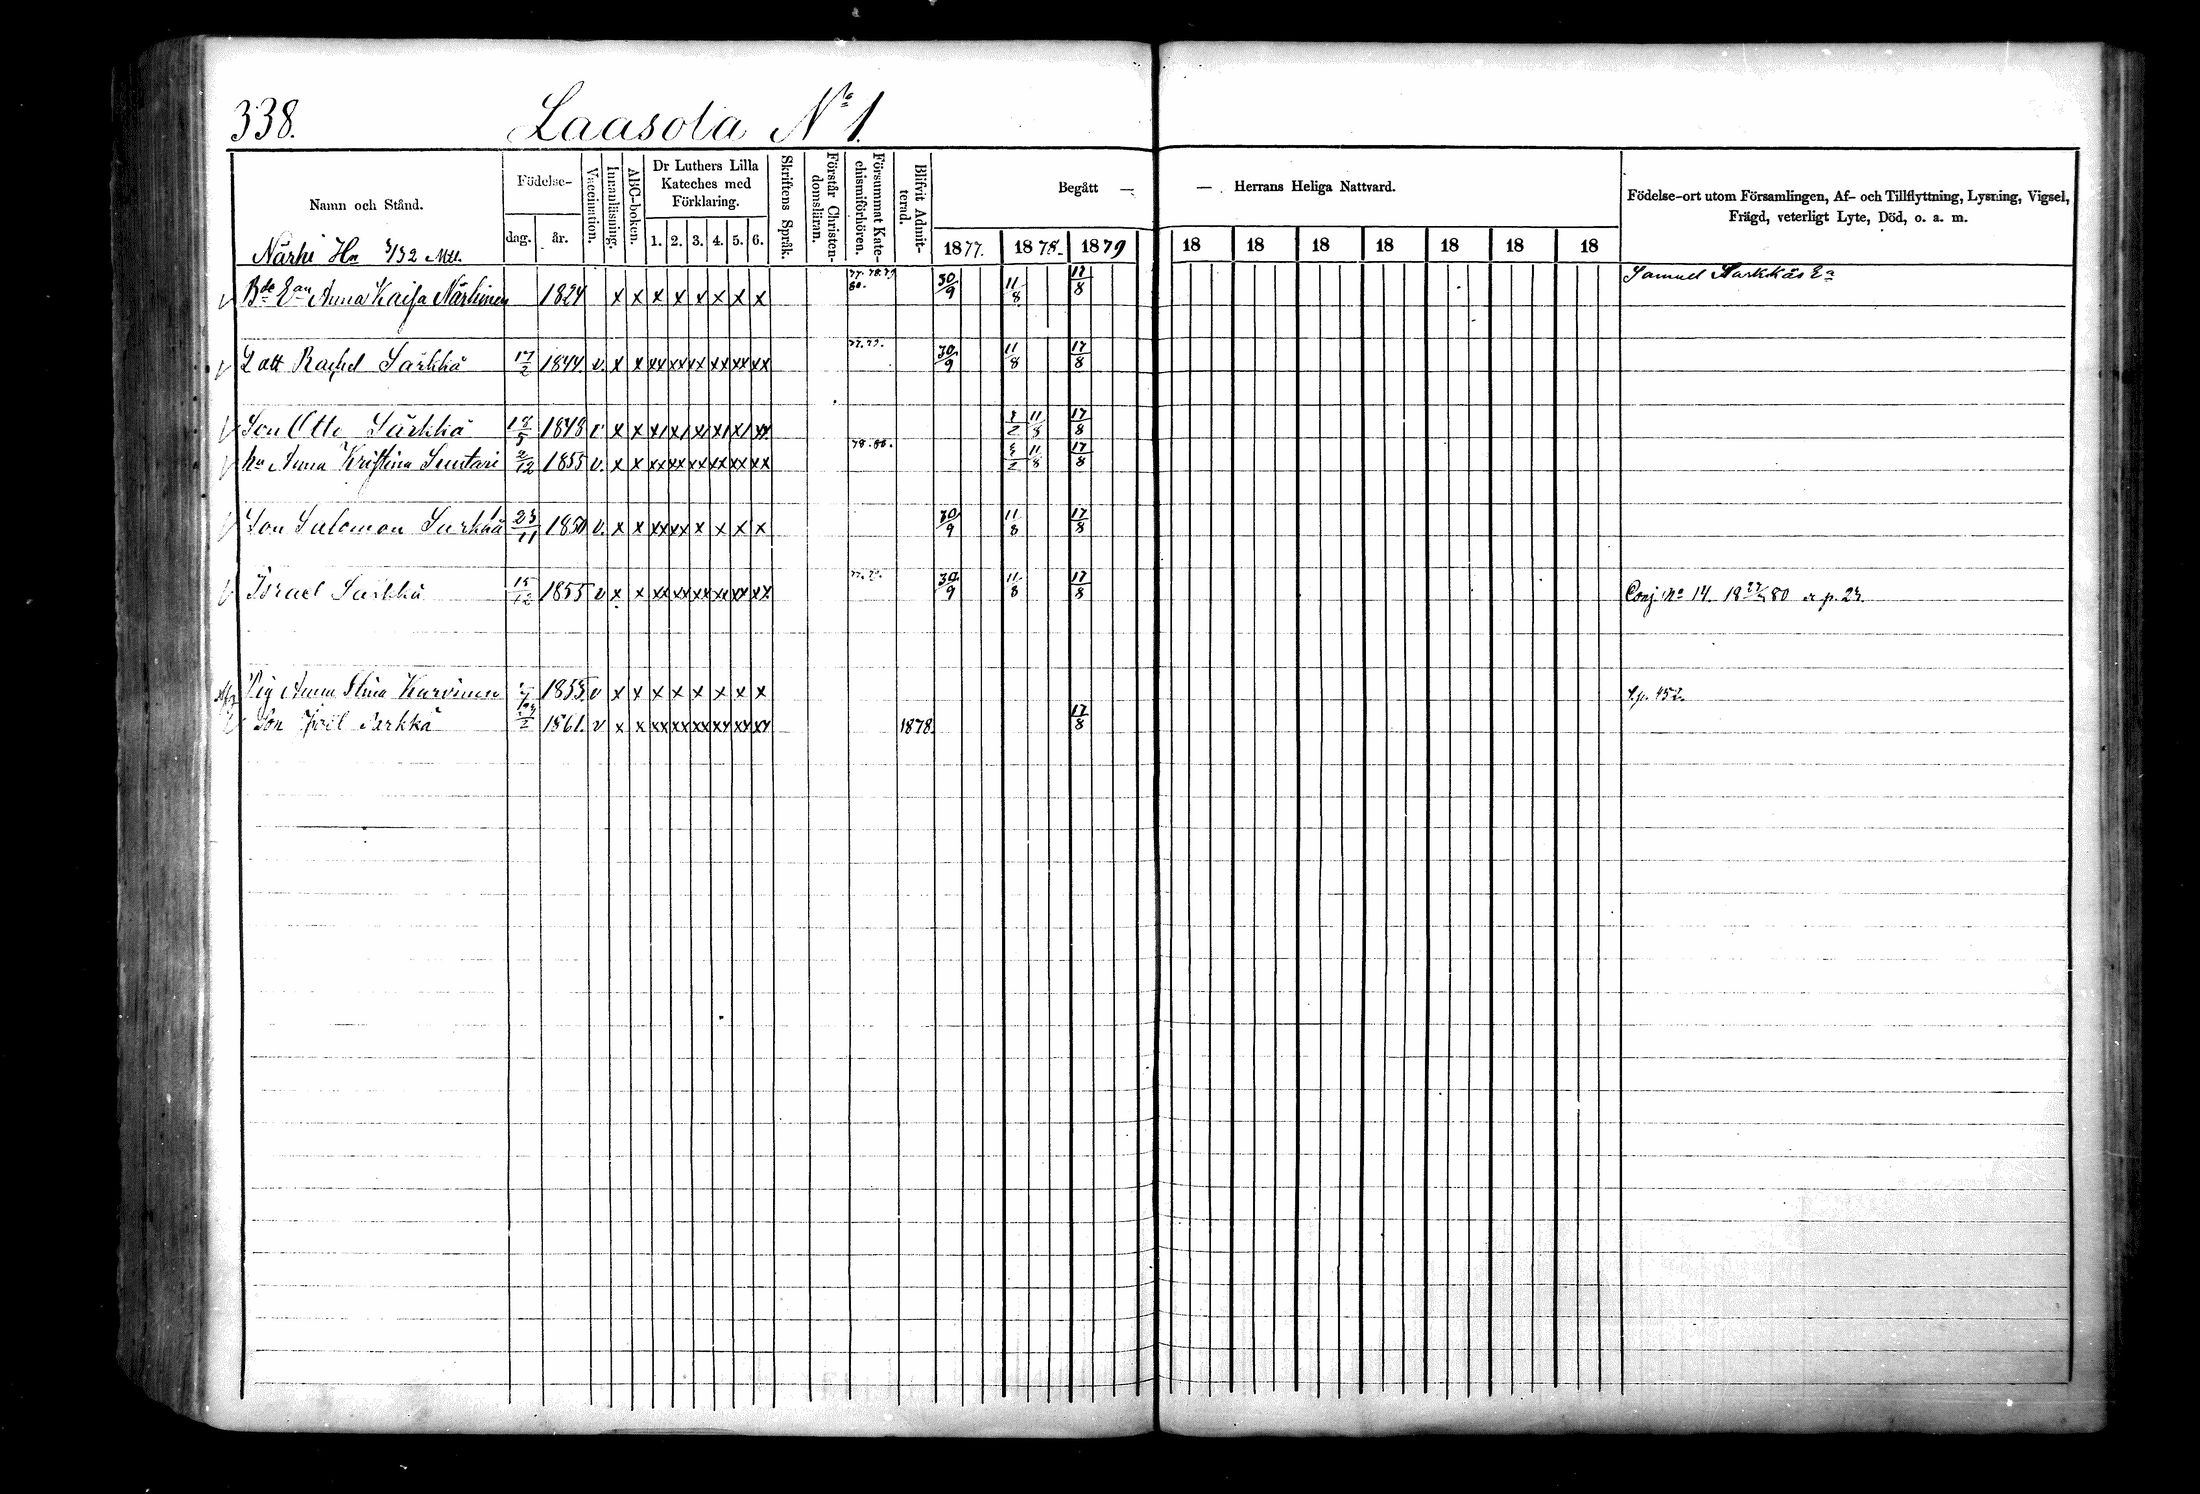 338. Laasola No 1.
Namn och Stånd. Födelse- dag. år. Vaccination. Innanläsning. ABC-boken. Dr Luthers Lilla Kateches med Förklaring. 1. 2. 3. 4. 5. 6. Skriftens Språk. Förstår Christendomsläran. Försummat Katechismiförhören. Blifvit Admitterad. Begått — — Herrans Heliga Nattvard. Födelse-ort utom Församlingen, Af- och Tillflyttning, Lysning, Vigsel, Frägd, veterligt Lyte, Död, o. a. m.
1877. 1878. 1879 18 18 18 18 18 18 18
Närhi Hn Mtl.
v Bde Ean Anna Kaisa Närhinen 1824 x x x x x x x x 77. 78. 79 80. 30/9 11/8 17/8 Samuel Särkkäs Ea
v Dott Rachel Särkkä 17/2 1844 v. x x xx xx xx xx xx xx 77. 79. 30/9 11/8 17/8
v Son Otto Särkkä 18/5 1848 v x x x x x x x xx 3/2 11/8 17/8
v hu Anna Kristina Suutari 2/12 1855 v. x x xx xx xx xx xx xx 78. 80. 3/2 11/8 17/8
v Son Salomon Särkkä 23/11 1850 v. x x xx xx x x x x 30/9 11/8 17/8
v Israel Särkkä 15/12 1855 v x x xx xx xx xx xx xx 30/9 11/8 17/8 Conj. No 14. 18 80 p. 23.
Pig Anna Stina Karvinen 1855 v x x x x x x x x p. 452.
v Son Joel Särkkä 1861. v x x xx xx xx xx xx xx 1878 17/8